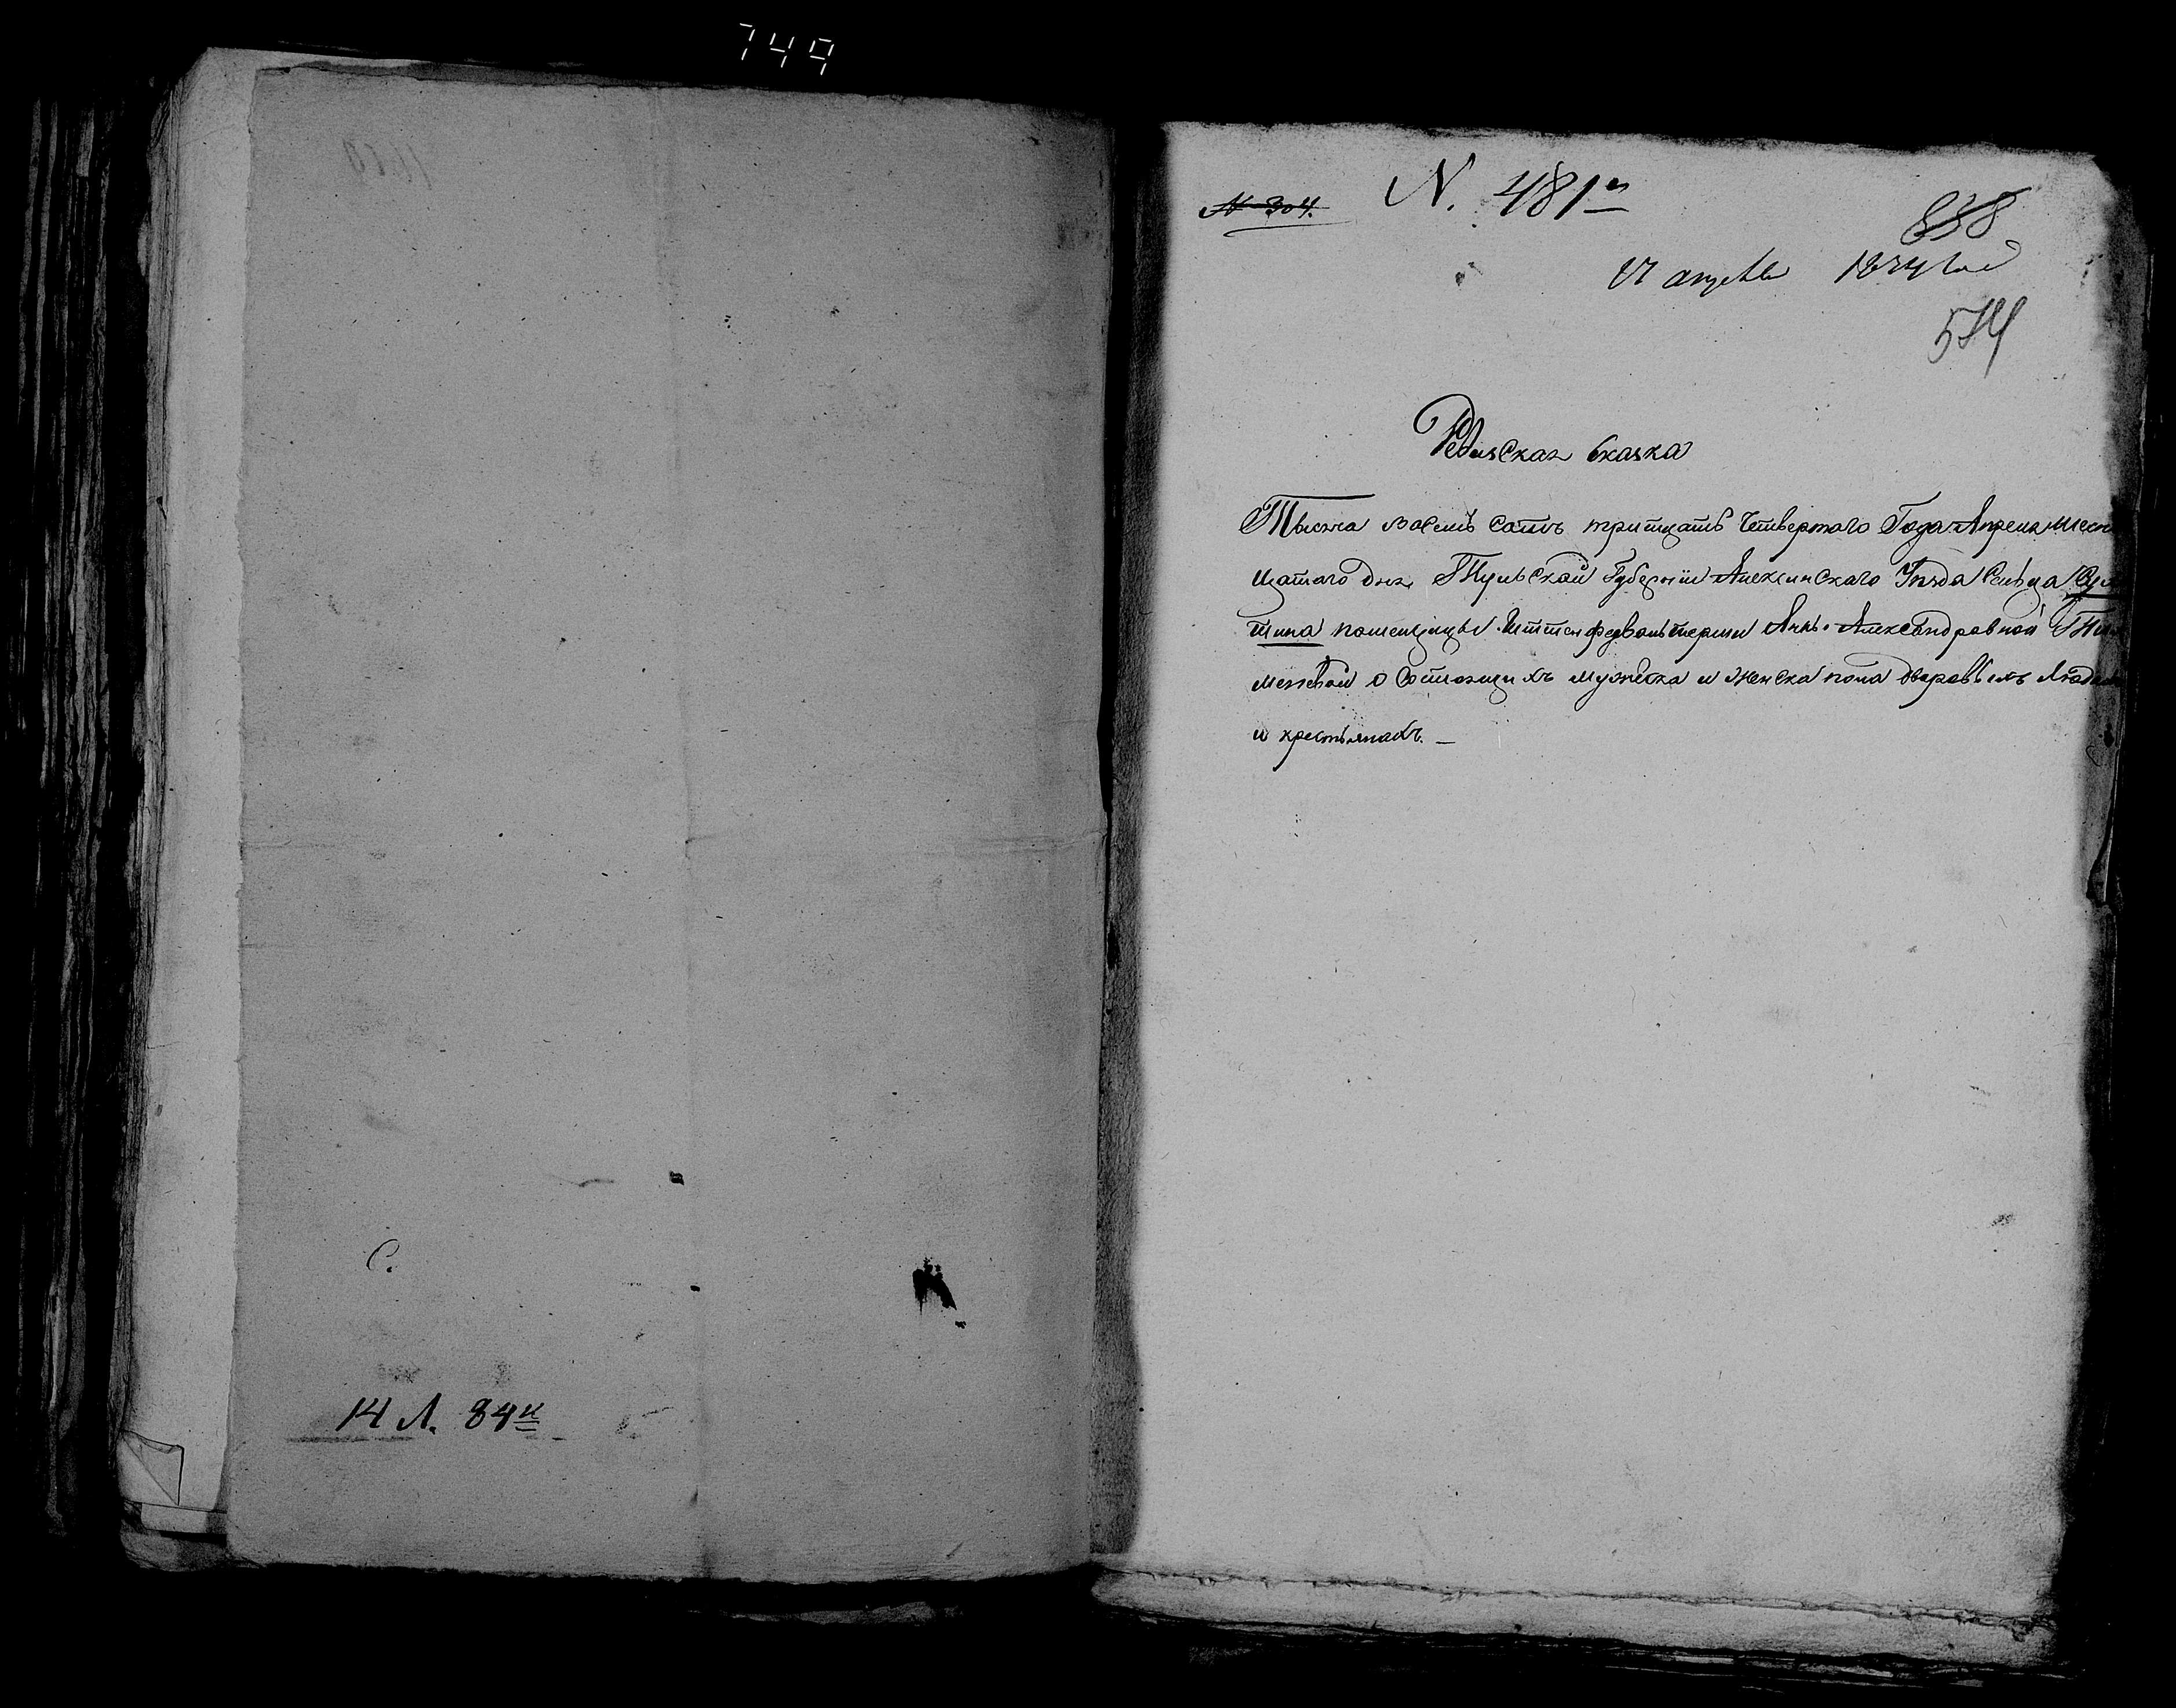 749
14 л. 84 к
№ 304.
N. 481й
838
17 апреля 1834 год
574
Ревизская сказка
Тысяча восемь сотъ тритцать четвертаго Года Апреля месе
цатаго дня Тульской Губернии Алексинскаго Уезда Сельца
тина помещицы Штатсъ Анны Александровной
о состоящихъ мужеска и женска пола дворовыхъ людя
и крестьянахъ. —